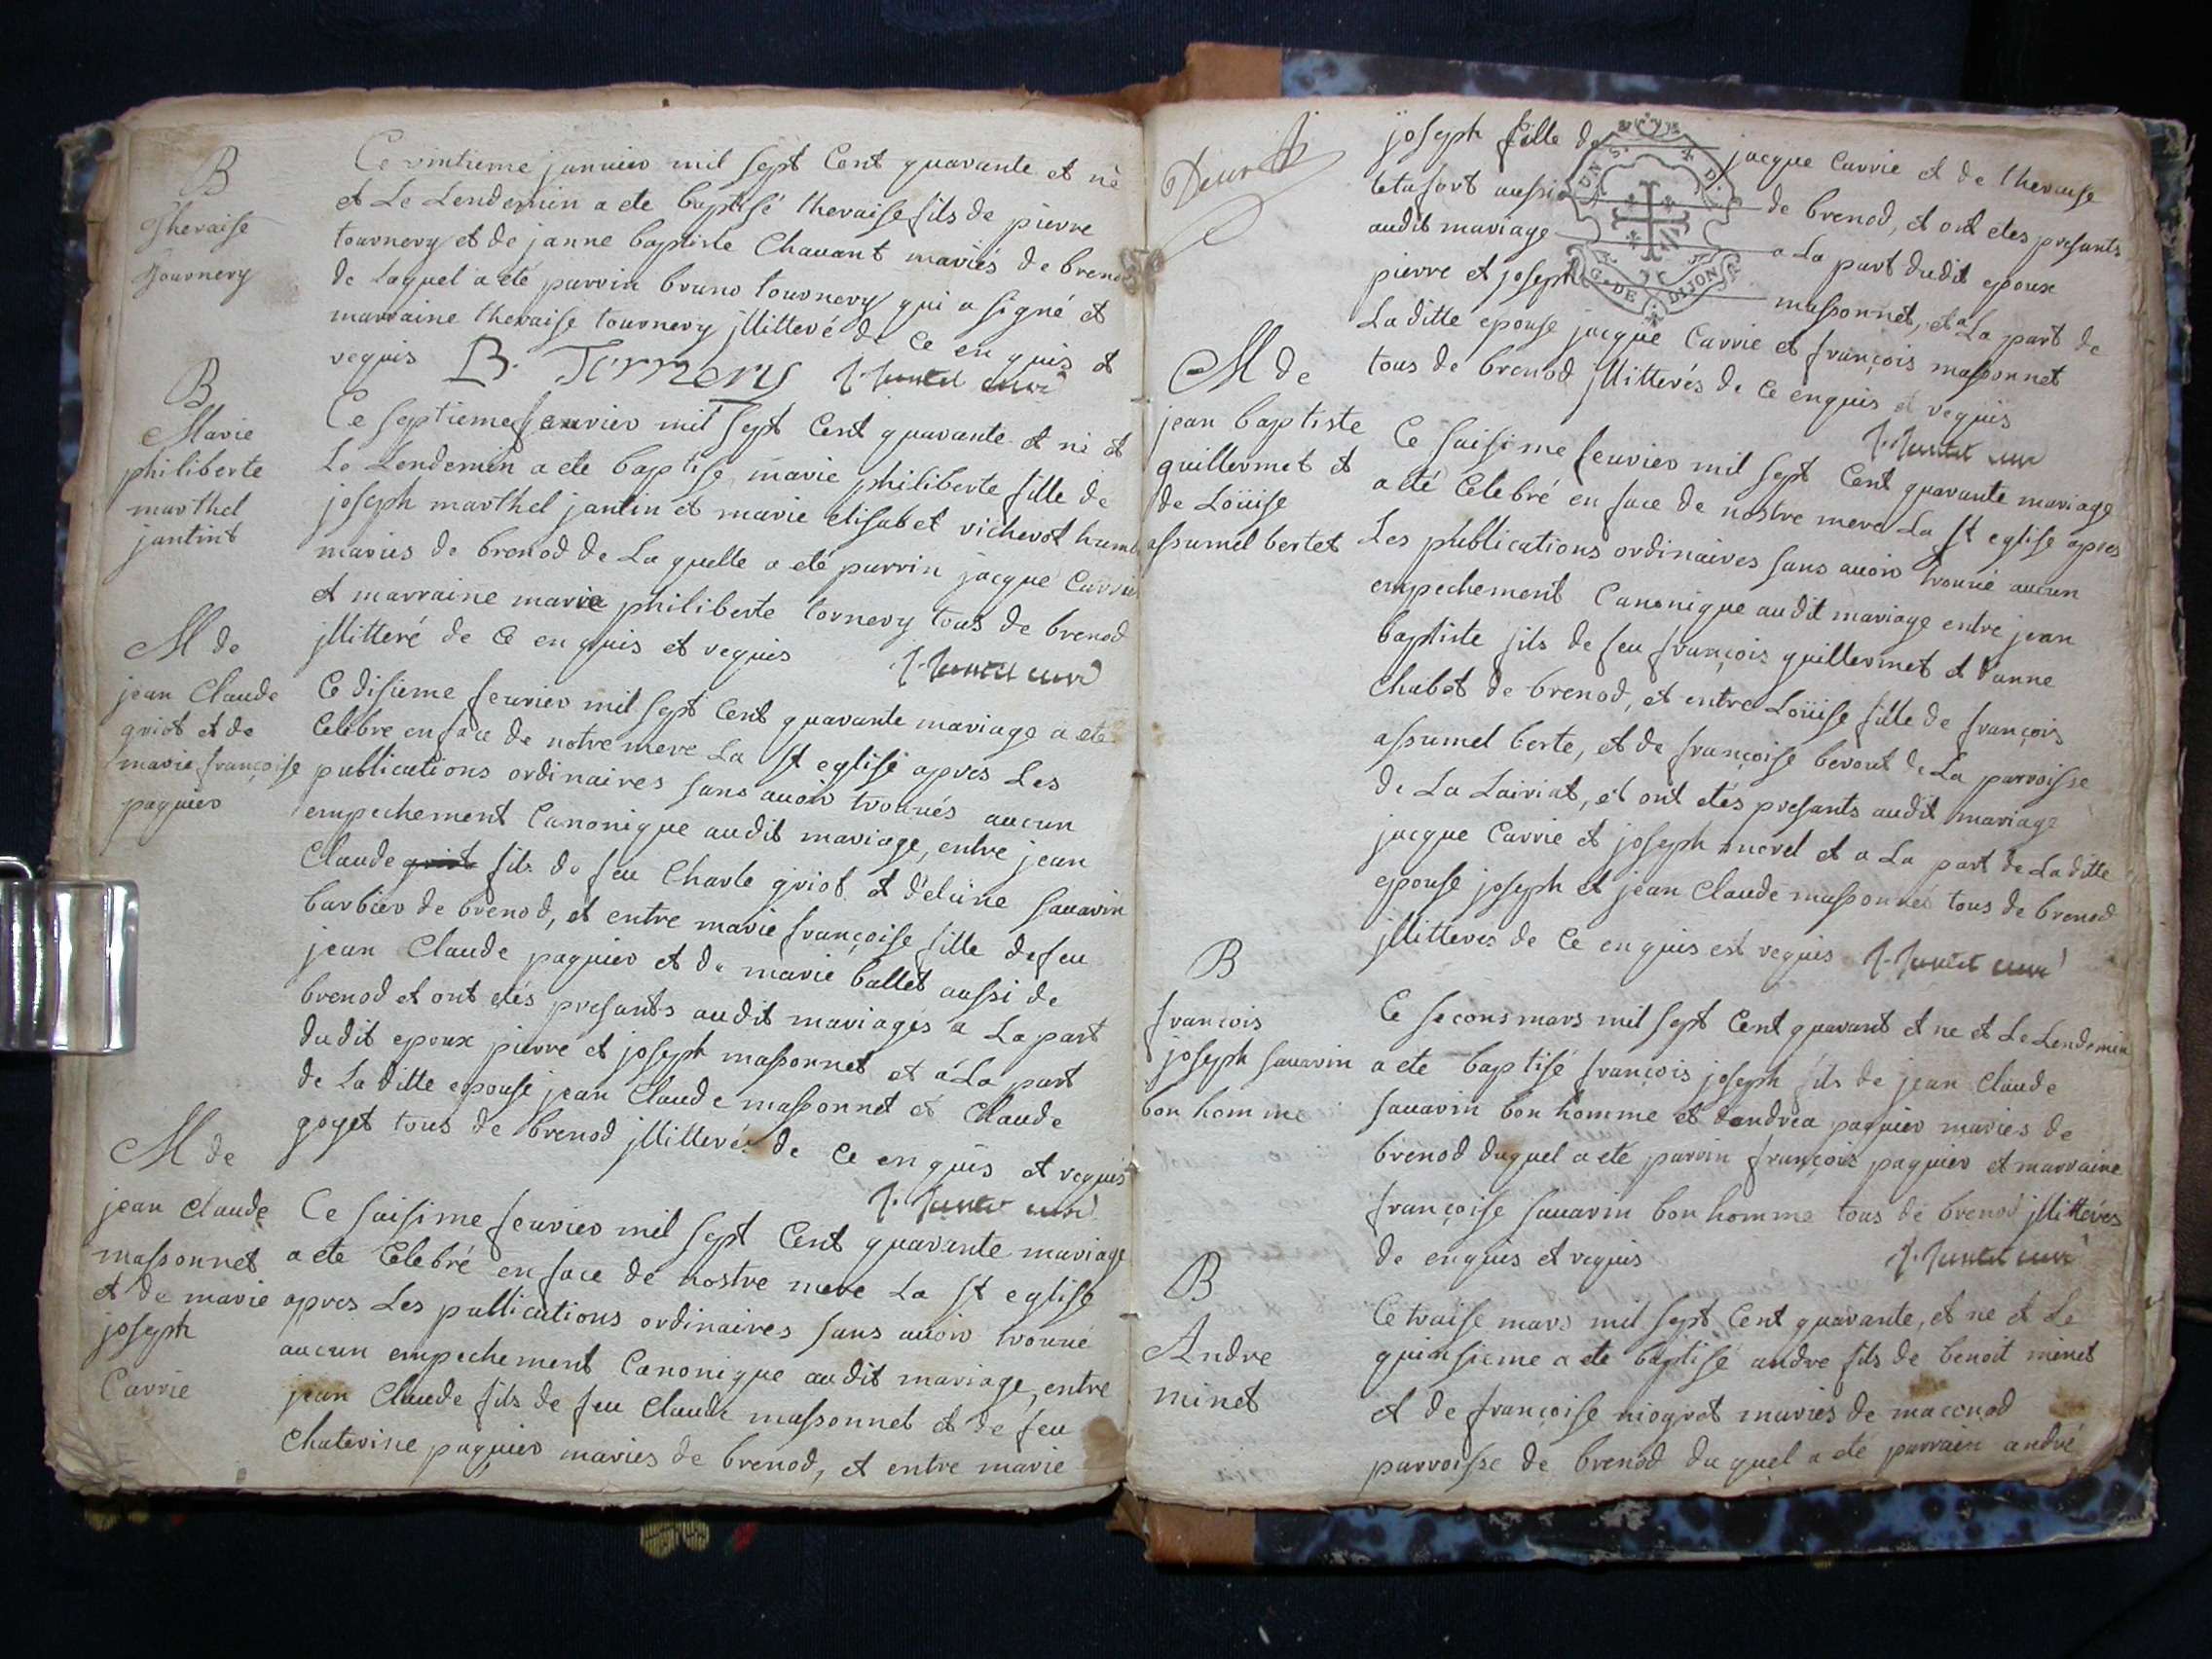 B
Theraise
Tournery
Ce vintieme januier mil sept Cent quarante et nè
et Le Lendemin a ete baptisé theraise fils de pierre
tournery et de janne baptiste Chauant mariés de breno
de Laquel a eté parrin bruno tournery qui a signé et
marraine theraise tournery jllitteré de Ce en quis et
requis B. Tornery
B
Marie
philiberte
marthel
jantint
Ce septieme feurier mil sept Cent quarante et nè et
Le Lendemin a ete baptise marie philiberte fille de
joseph marthel jantin et marie elisabet vicherot humb
maries de brenod de La quelle a eté parrin jacque Carrie
et marraine marie philiberte tornery tous de brenod
jllitteré de Ce en quis et requis
M de
jean Claude
griot et de
marie françoise
paquier
Ce disieme feurier mil sept Cent quarante mariage a ete
Celebre en face de notre mere La st eglise apres Les
publications ordinaires sans auoir trouués aucun
empechement Canonique audit mariage, entre jean
Claude griot fils de feu Charle griot et d'elaine sauarin
barbier de brenod, et entre marie françoise fille de feu
jean Claude paquier et de marie ballet aussi de
brenod et ont etés presants audit mariages a La part
dudit epoux pierre et joseph massonnet et a La part
de La ditte epouse jean Claude massonnet et Claude
goyet tous de brenod jllitterés de Ce en quis et requis
M de
jean claude
massonnet
et de marie
joseph
Carrie
Ce saisime feurier mil sept Cent quarante mariage
a ete Celebré en face de nostre mere La st eglise
apres Les publications ordinaires sans auoir trouué
aucun empechement Canonique audit mariage, entre
jean Claude fils de feu Claude massonnet et de feu
Chaterine paquier maries de brenod, et entre marie
Deux
joseph fille de jacque Carrie et de theraise
tetafort aussi de brenod, et ont etes presants
audit mariage a La part dudit epoux
pierre et joseph massonnet, et a La part de
La ditte epouse jacque Carrie et françois massonnet
tous de brenod jllitterés de Ce enquis et requis
UNS. D.
G. DE DIJON
M de
jean baptiste
guillermet et
de Loüise
assumel bertet
Ce saisime feurier mil sept Cent quarante mariage
a eté Celebré en face de nostre mere La st eglise apres
Les publications ordinaires sans auoir trouué aucun
empechement Canonique audit mariage entre jean
baptiste fils de feu françois guillermet et d'anne
Chabot de brenod, et entre Loüise fille de françois
assumel berte, et de françoise berout de La parroisse
de La Lairiat, et ont etés presants audit mariage
jacque Carrie et joseph morel et a La part de La ditte
epouse joseph et jean Claude massonnet tous de brenod
jllitteres de Ce enquis est requis
B
françois
joseph sauarin
bon homme
Ce secons mars mil sept Cent quarant et ne et Le Lendemin
a ete baptisé françois joseph fils de jean Claude
sauarin bon homme et dandrea paquier maries de
brenod duquel a ete parrin françois paquier et marraine
françoise sauarin bon homme tous de brenod jllitterés
de enquis et requis
B
Andre
minet
Ce traise mars mil sept Cent quarante, et ne et Le
quinsieme a ete baptisé andre fils de benoit minet
et de françoise niogret maries de maconod
parroisse de brenod du quel a eté parrain andré